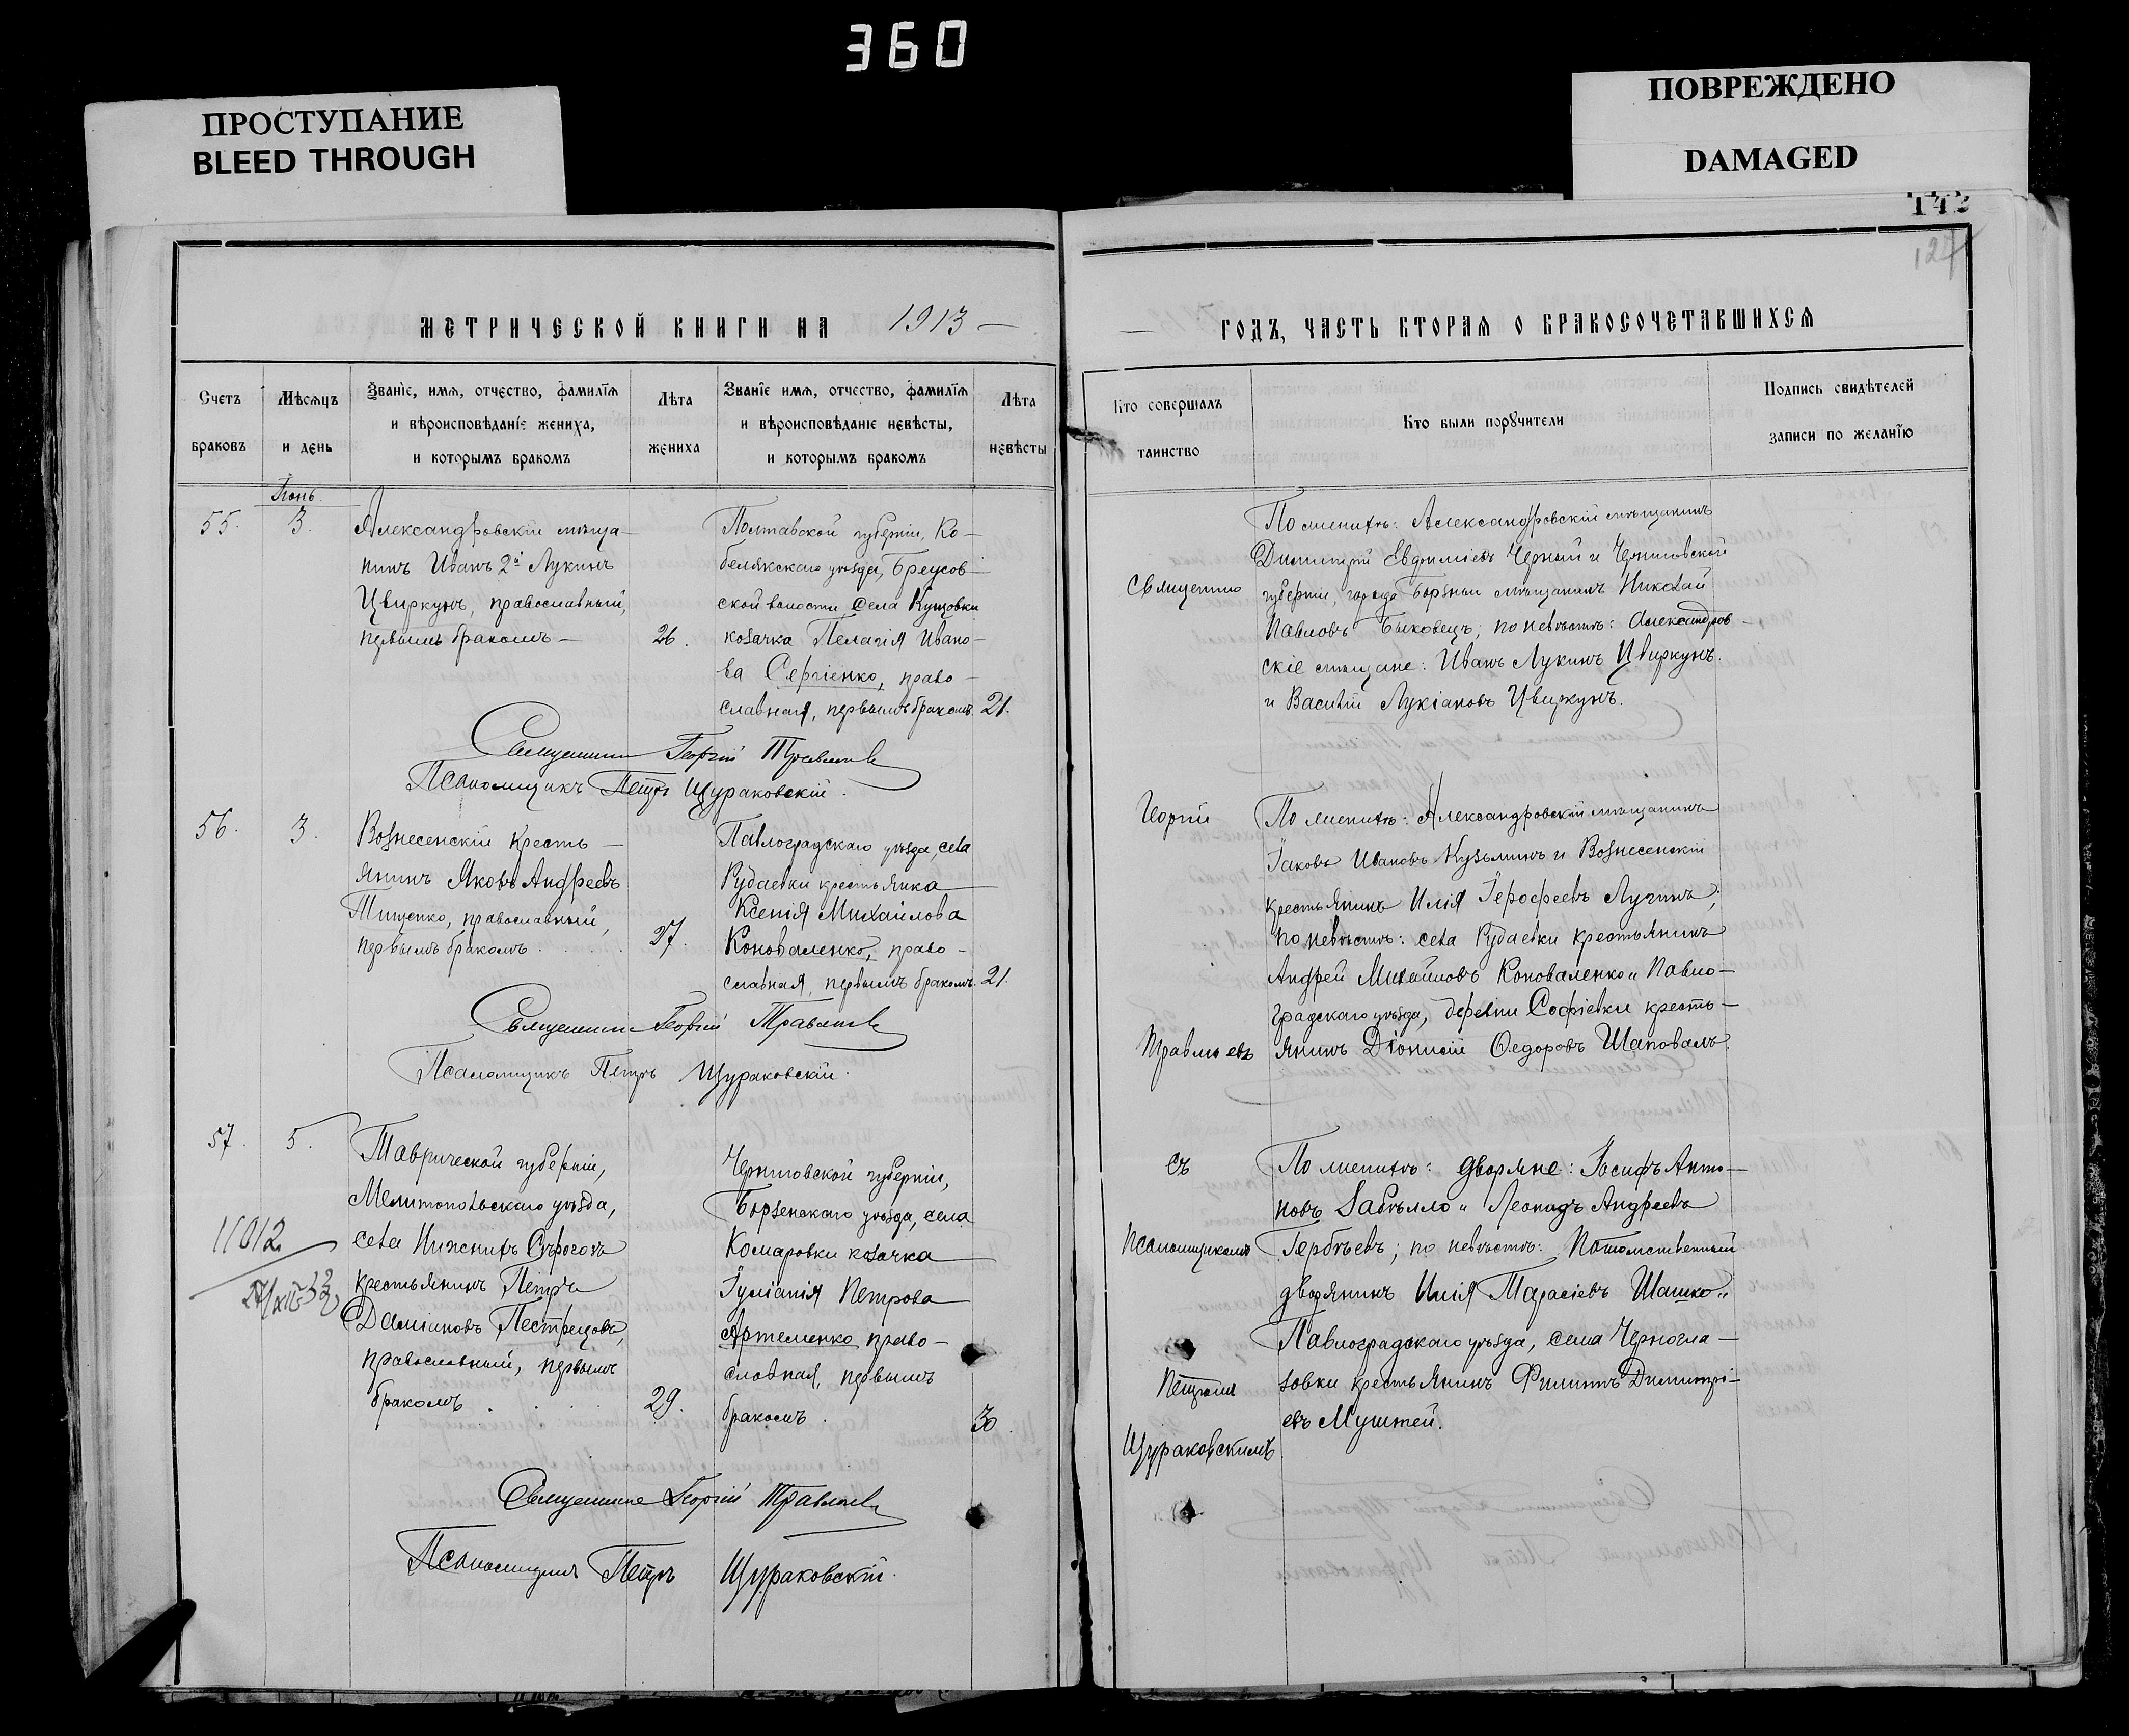 360
ПРОСТУПАНИЕ
BLEED THROUGH
ПОВРЕЖДЕНО
DAMAGED
143
127
МЕТРИЧЕСКОЙ КНИГИ НА 1913 —
Счетъ
браковъ
Мѣсяцъ
и день
Званіе, имя, отчество, фамилія
и вѣроисповѣданіе жениха,
и которымъ бракомъ
Лѣта
жениха
Званіе имя, отчество, фамилія
и вѣроисповѣданіе невѣсты,
и которымъ бракомъ
Лѣта
невѣсты
Іюнь.
55. 3.
Александровскій мѣща-
нинъ Иванъ 2й Лукинъ
Цвиркунъ, православный,
первымъ бракомъ — 26.
Полтавской губерніи, Ко-
белякскаго уѣзда, Бреусов-
ской волости села Кущовки
козачка Пелагія Ивано-
ва Сергіенко, право-
славная, первымъ бракомъ. 21.
Священникъ Георгій Травлѣевъ
Псаломщикъ Петръ Щураковскій.
56. 3.
Вознесенскій кресть-
янинъ Яковъ Андреевъ
Тищенко, православный,
первымъ бракомъ . . . 27.
Павлоградскаго уѣзда, села
Рудаевки крестьянка
Ксенія Михайлова
Коноваленко, право-
славная, первымъ бракомъ. 21.
Священникъ Георгій Травлѣевъ
Псаломщикъ Петръ Щураковскій.
57. 5.
11012
Таврической губерніи,
Мелитопольскаго уѣзда,
села Нижнихъ Сѣрогозъ
крестьянинъ Петръ
Даміановъ Пестрецовъ,
православный, первымъ
бракомъ . . . 29.
Черниговской губерніи,
Борзенскаго уѣзда, села
Комаровки козачка
Іуліанія Петрова
Артеменко, право-
славная, первымъ
бракомъ . 30.
Священникъ Георгій Травлѣевъ
Псаломщикъ Петръ Щураковскій.
— ГОДЪ, ЧАСТЬ ВТОРАЯ О БРАКОСОЧЕТАВШИХСЯ
Кто совершалъ
таинство
Кто были поручители
Подпись свидѣтелей
записи по желанію
Священно
Георгій
Травлѣевъ
съ
псаломщикомъ
Петромъ
Щураковскимъ
По женихѣ: Александровскій мѣщанинъ
Димитрій Евфиміевъ Черный и Черниговской
губерніи, города Борзны мѣщанинъ Николай
Павловъ Быковецъ; по невѣстѣ: Александров-
скіе мѣщане: Иванъ Лукинъ Цвиркунъ.
и Василій Лукіановъ Цвиркунъ.
По женихѣ: Александровскій мѣщанинъ
Іаковъ Ивановъ Кузьминъ и Вознесенскій
крестьянинъ Илія Іерофеевъ Лучинъ;
по невѣстѣ: села Рудаевки крестьянинъ
Андрей Михайловъ Коноваленко и Павло-
градскаго уѣзда, деревни Софіевки кресть-
янинъ Діонисій Ѳедоровъ Шаповалъ.
По женихѣ: дворяне: Іосифъ Анто-
новъ Забѣлло и Леонидъ Андреевъ
Гербѣевъ; по невѣстѣ: потомственный
дворянинъ Илія Тарасіевъ Шашко и
Павлоградскаго уѣзда, села Черногла-
зовки крестьянинъ Филиппъ Димитрі-
евъ Муштей.